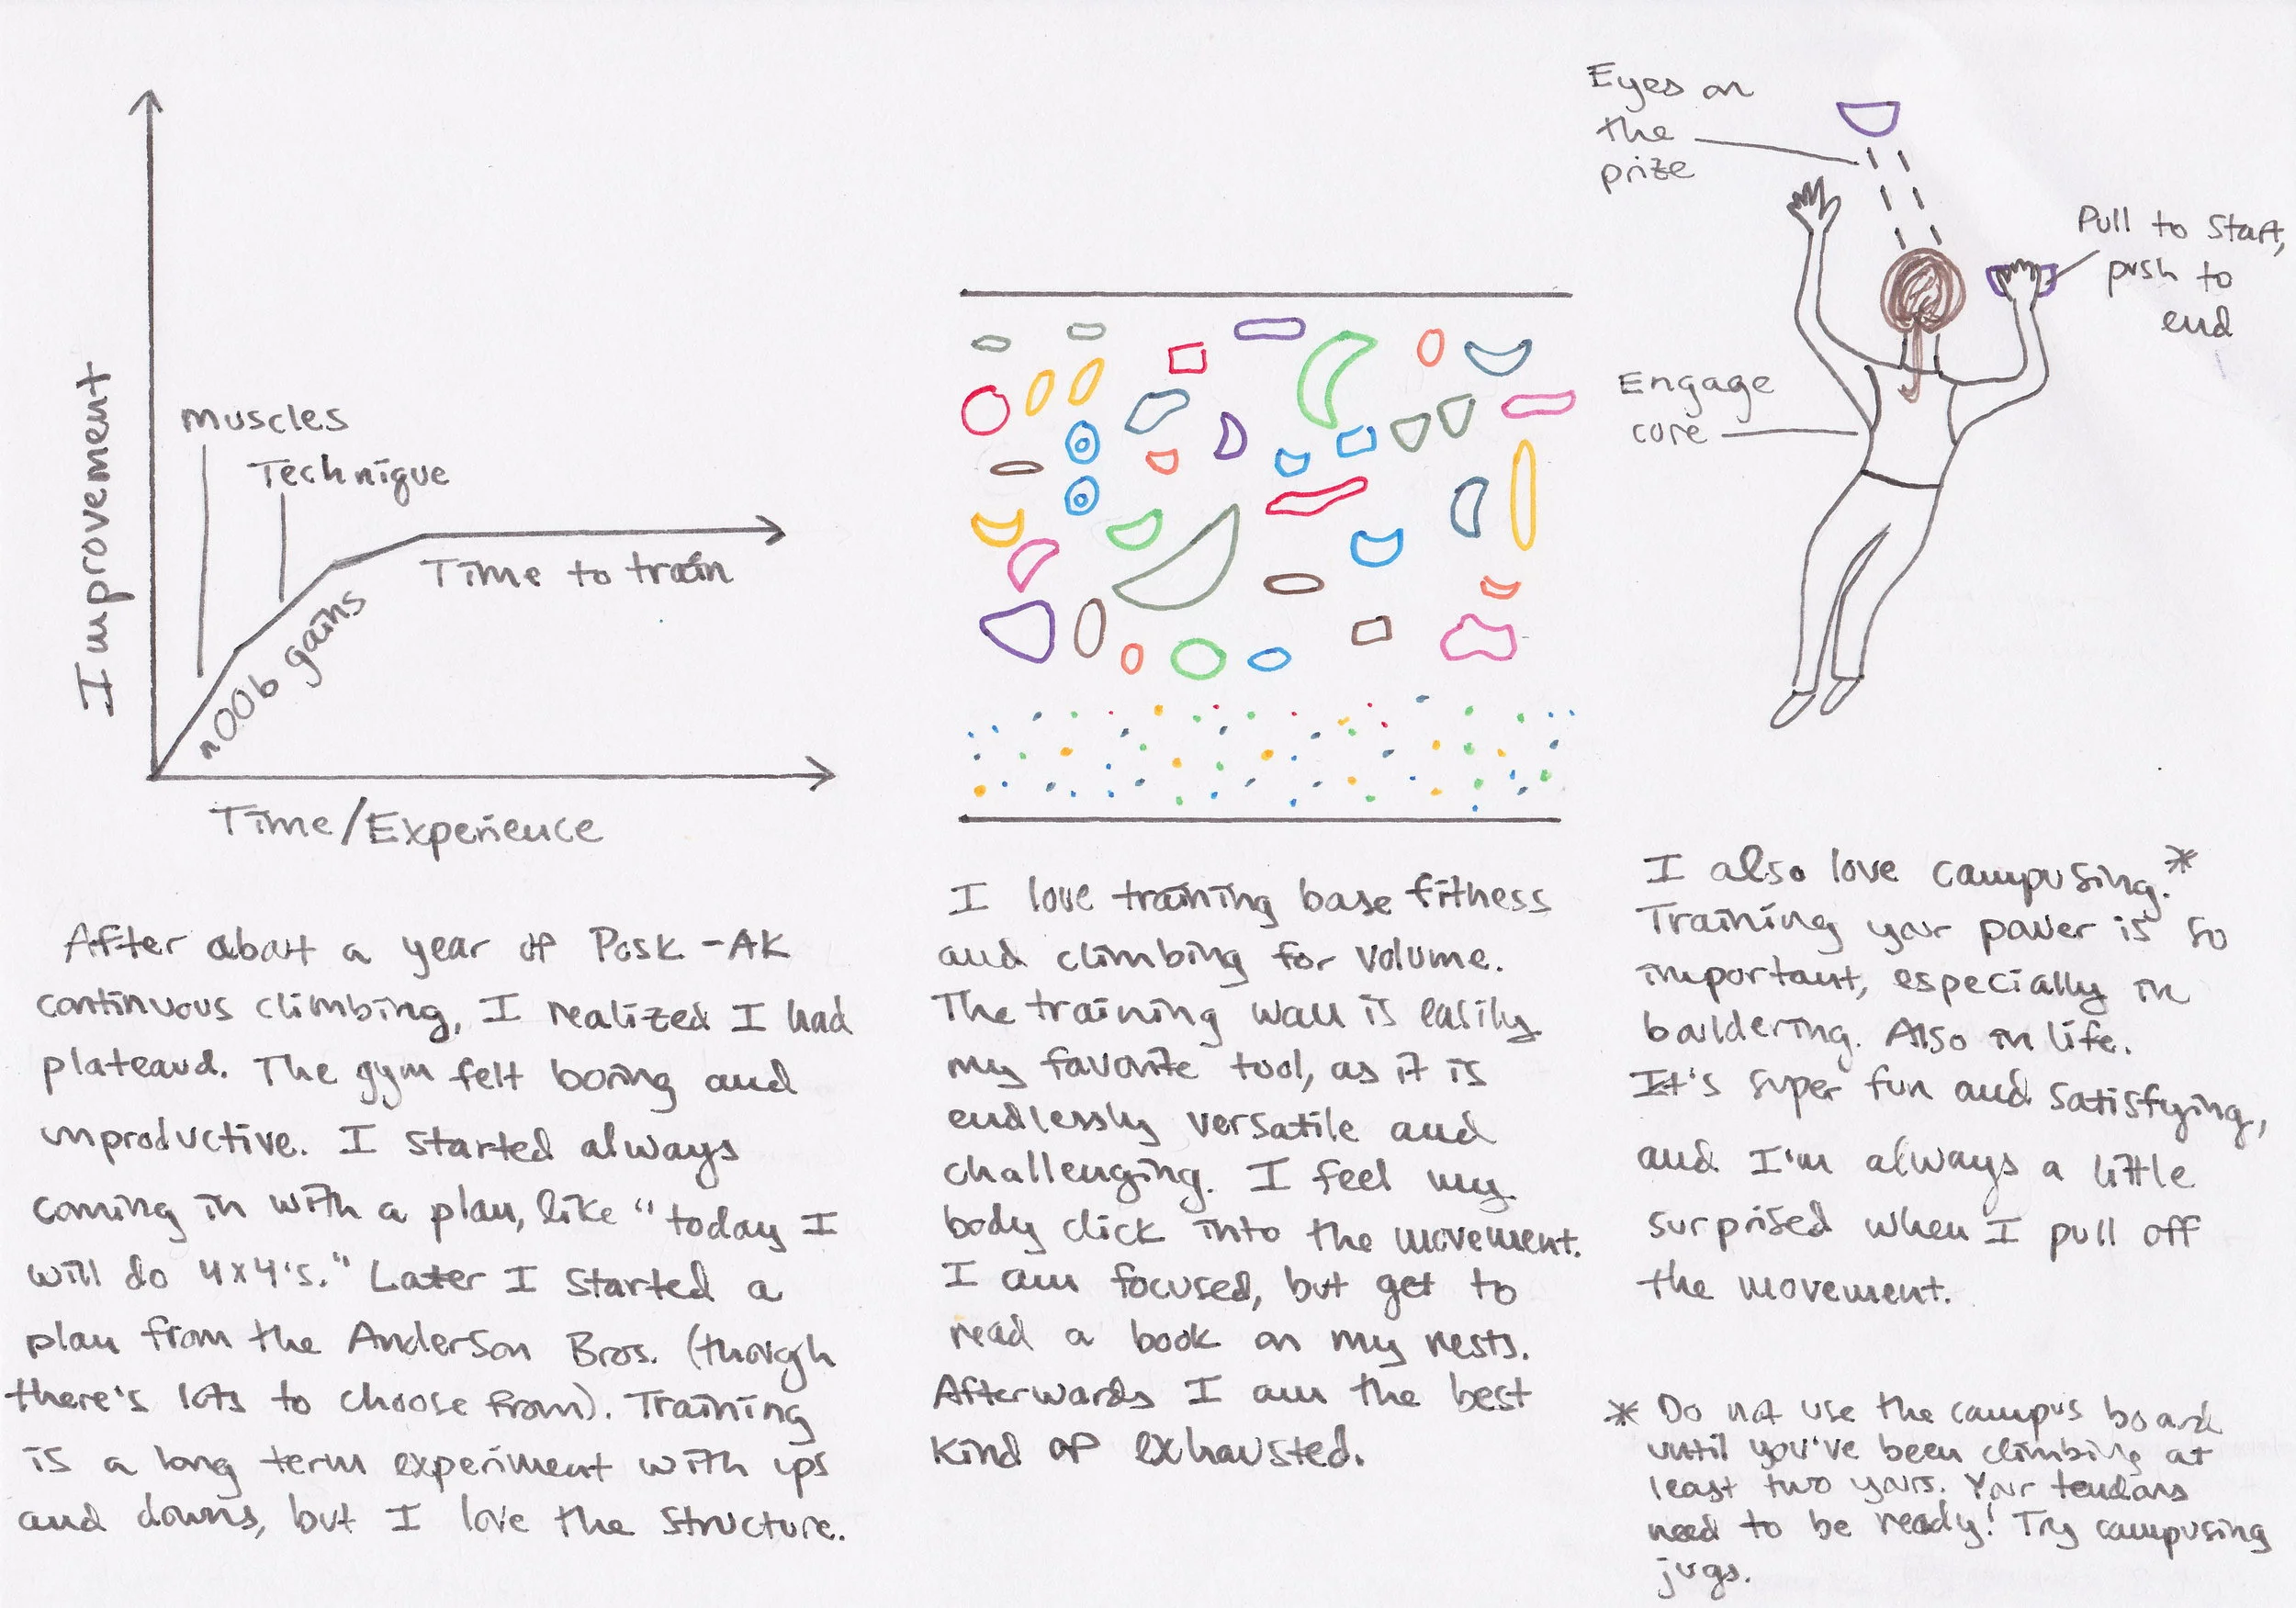 Improvement
Muscles
Technique
n00b gains
Time to train
Time/Experience
After about a year of Post-AK
continuous climbing, I realized I had
plateaud. The gym felt boring and
unproductive. I started always
coming in with a plan, like "today I
will do 4x4's." Later I started a
plan from the Anderson Bros. (though
there's lots to choose from). Training
is a long term experiment with ups
and downs, but I love the structure.
I love training base fitness
and climbing for volume.
The training wall is easily
my favorite tool, as it is
endlessly versatile and
challenging. I feel my
body click into the movement.
I am focused, but get to
read a book on my rests.
Afterwards I am the best
kind of exhausted.
Eyes on
the
prize
Pull to start,
push to
end
Engage
core
I also love campusing.*
Training your power is so
important, especially in
bouldering. Also in life.
It's super fun and satisfying,
and I'm always a little
surprised when I pull off
the movement.
* Do not use the campus board
until you've been climbing at
least two years. Your tendons
need to be ready! Try campusing
jugs.